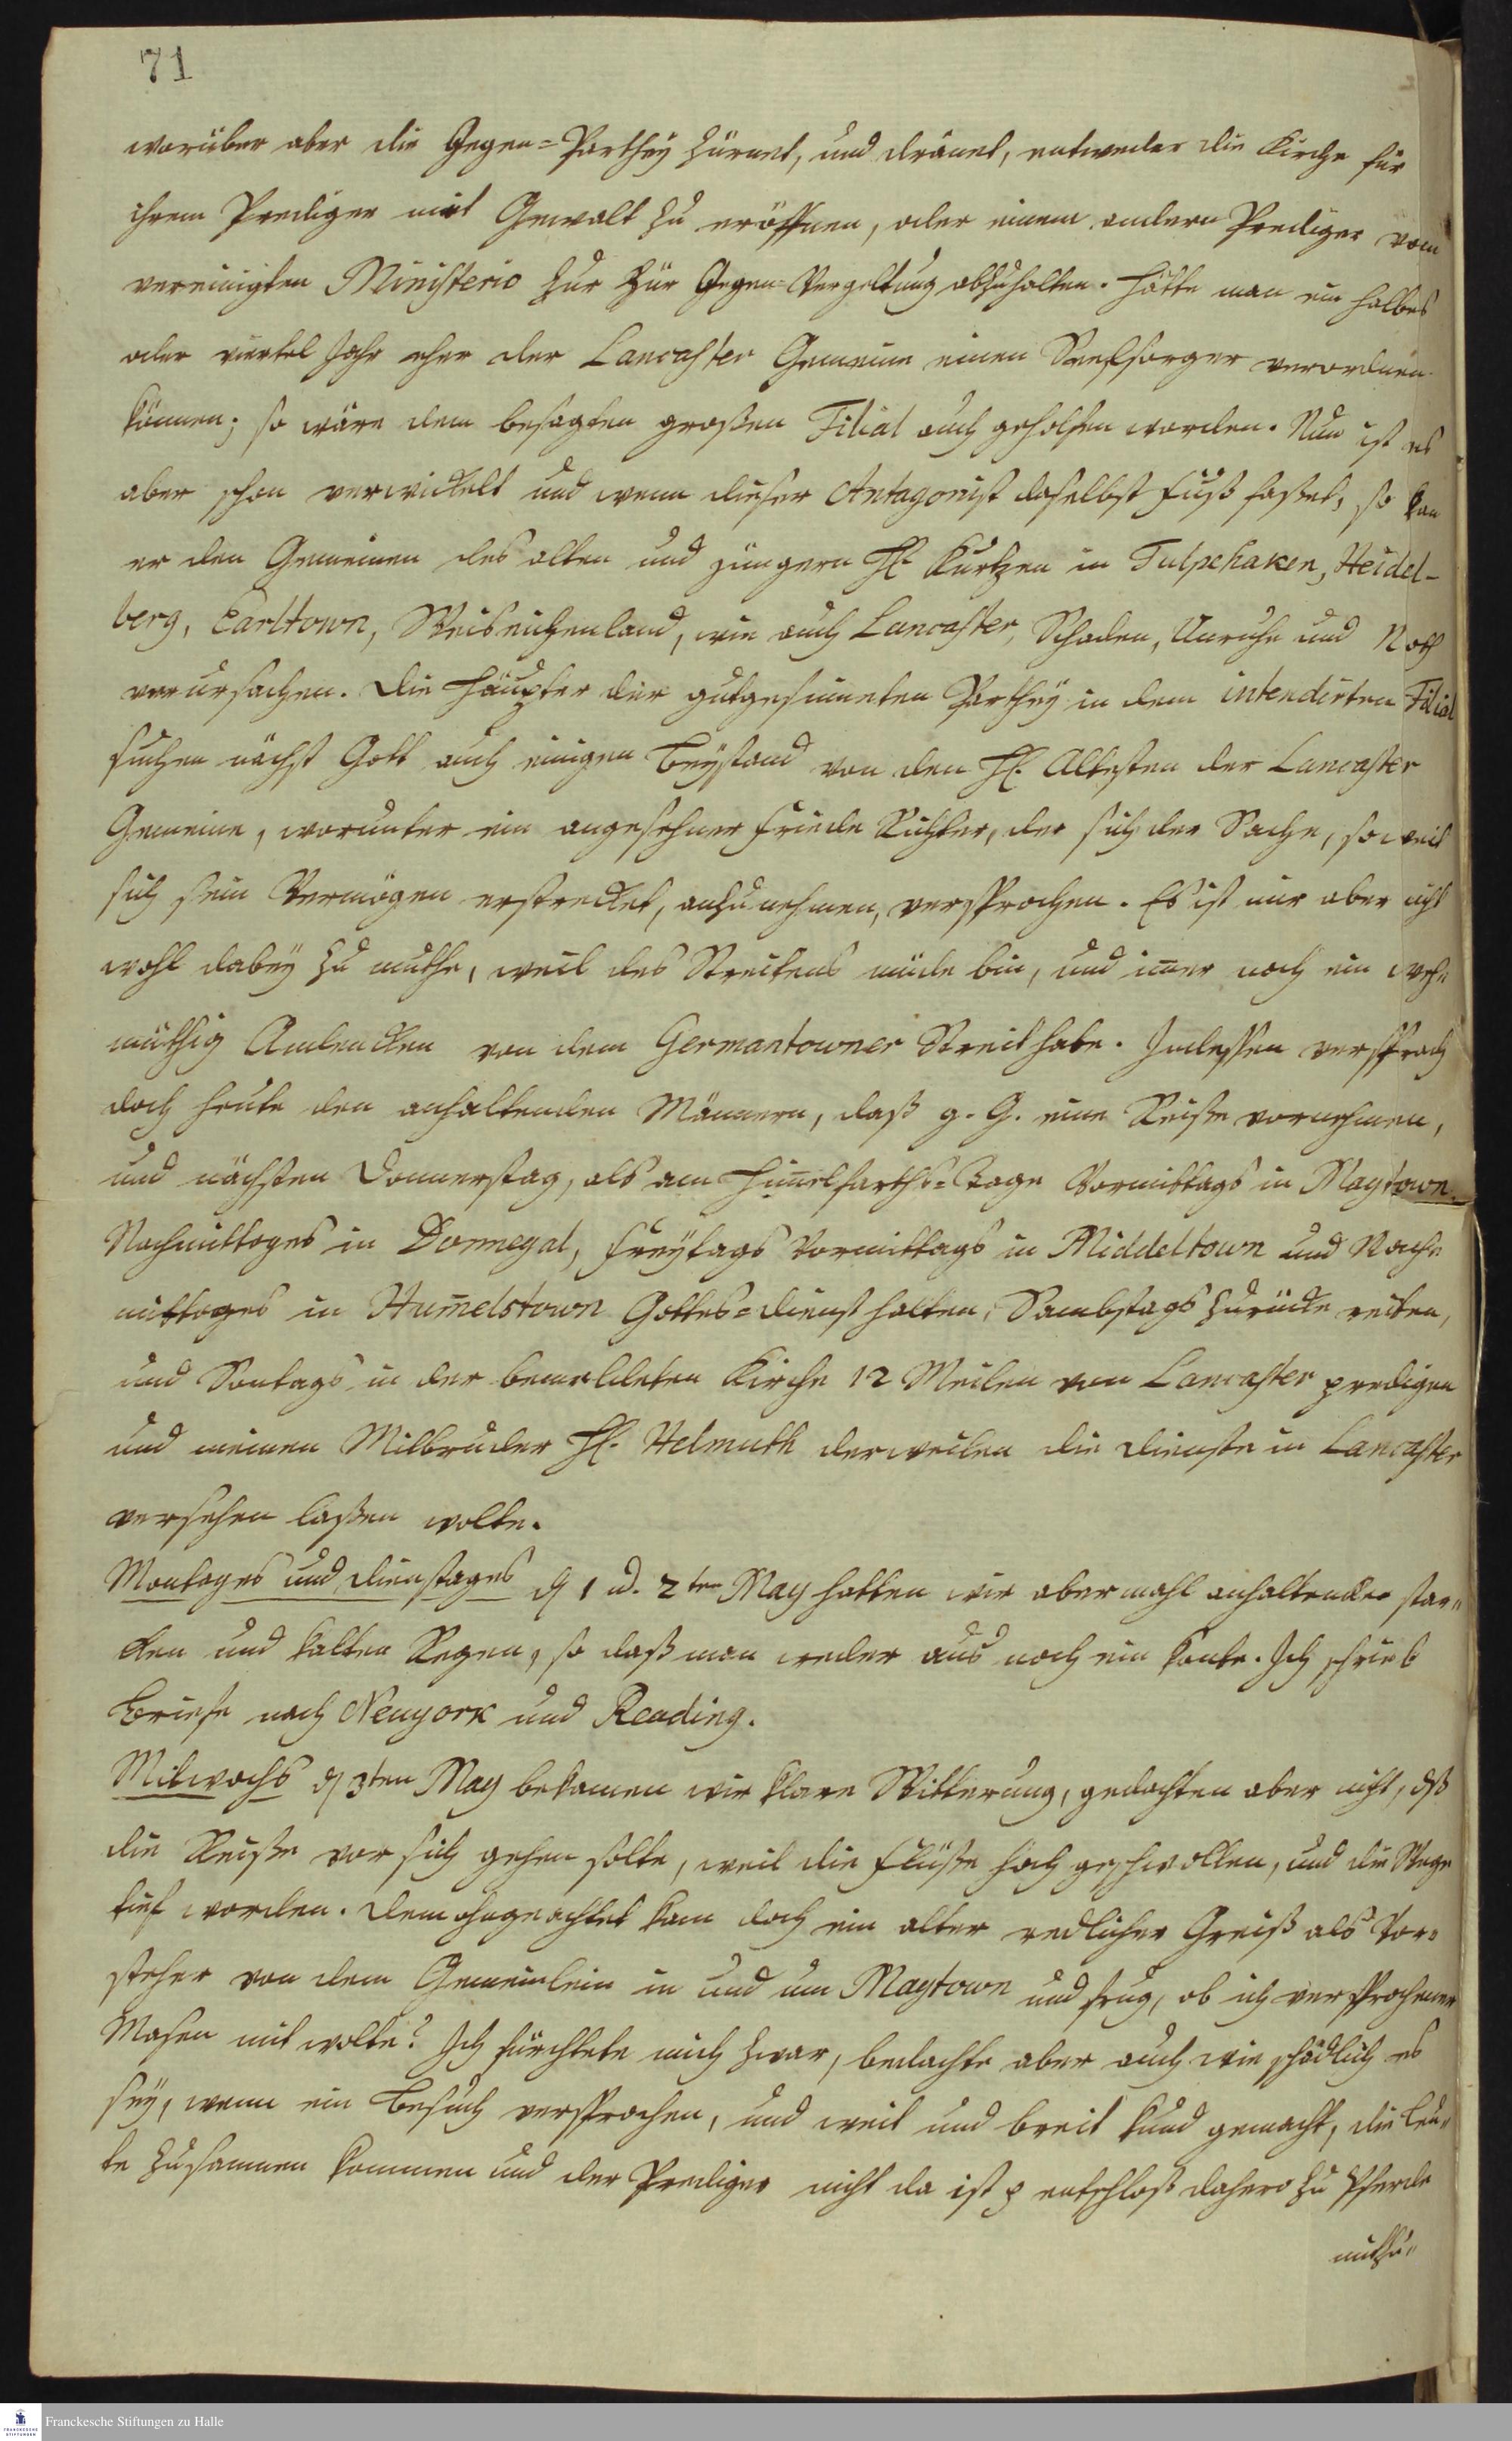 71
worüber aber die Gegen=Parthey zürnet, und dräuet, entweder die Kirche für
ihrem Prediger mit Gewalt zu eröffnen, oder einem andern Prediger vom
vereinigten Ministerio zur Gegen-Vergeltung abzuhalten. Hätte man ein halbes
oder viertel Jahr eher der Lancaster Gemeine einen Seelsorger verordnen
können; so wäre dem besagten großen Filial auch geholfen worden. Nun ist es
aber schon verwickelt und wenn dieser Antagonist daselbst Fuß faßet, so kan
er den Gemeinen des alten und jüngern H. Kurtzen in Tulpehaken, Heidel-
berg, Earltown, Weiseichenland, wie auch Lancaster, Schaden, Unruhe und Noth
verursachen. Die Häupter der gutgesinneten Parthey in dem intendirten Filial
suchen nächst Gott auch einigen Beystand von den H. Altesten der Lancaster
Gemeine, worunter ein angesehner Friede Richter, der sich der Sache, so weit
sich sein Vermögen erstrecket, anzunehmen, versprochen. Es ist mir aber nicht
wohl dabey zu muthe, weil des Streitens müde bin, und im̄er noch ein weh-
müthig Andencken von dem Germantowner Streit habe. Indessen versprach
doch heute den anhaltenden Männern, daß g. G. eine Reise vornehmen,
und nächsten Donnerstag, als am Him̄elfarths=Tage Vormittags in Maytown.
Nachmittages in Donnegal, Freytags Vormittags in Middeltown und Nach-
mittages in Hum̄elstown Gottes=dienst halten, Sambstags zurücke reiten,
und Sontags in der bemeldeten Kirche 12 Meilen von Lancaster predigen
und meinen Mitbruder H. Helmuth derweilen die Dienste in Lancaster
versehen laßen wolte.
Montages und Dienstages d 1 u. 2ten May hatten wir abermahl anhaltender star=
cken und kalten Regen, so daß man weder aus noch ein konte. Ich schrieb
Briefe nach Neuyork und Reading.
Mitwochs d 3ten May bekamen wir klare Witterung, gedachten aber nicht, dß
die Reise vor sich gehen solte, weil die Flüße hoch geschwollen, und die Wege
tief worden. Dem ohngeachtet kam doch ein alter redlicher Greiß als Vor=
steher von dem Gemeinlein in und um Maytown und frug, ob ich versprochener
Masen mit wolte? Ich fürchtete mich zwar, bedachte aber auch wie schädlich es
sey, wenn ein Besuch versprochen, und weit und breit kund gemacht, die Leu=
te zusammen kommen und der Prediger nicht da ist p entschloß dahero zu Pferde
mitzu=
Franckesche Stiftungen zu Halle